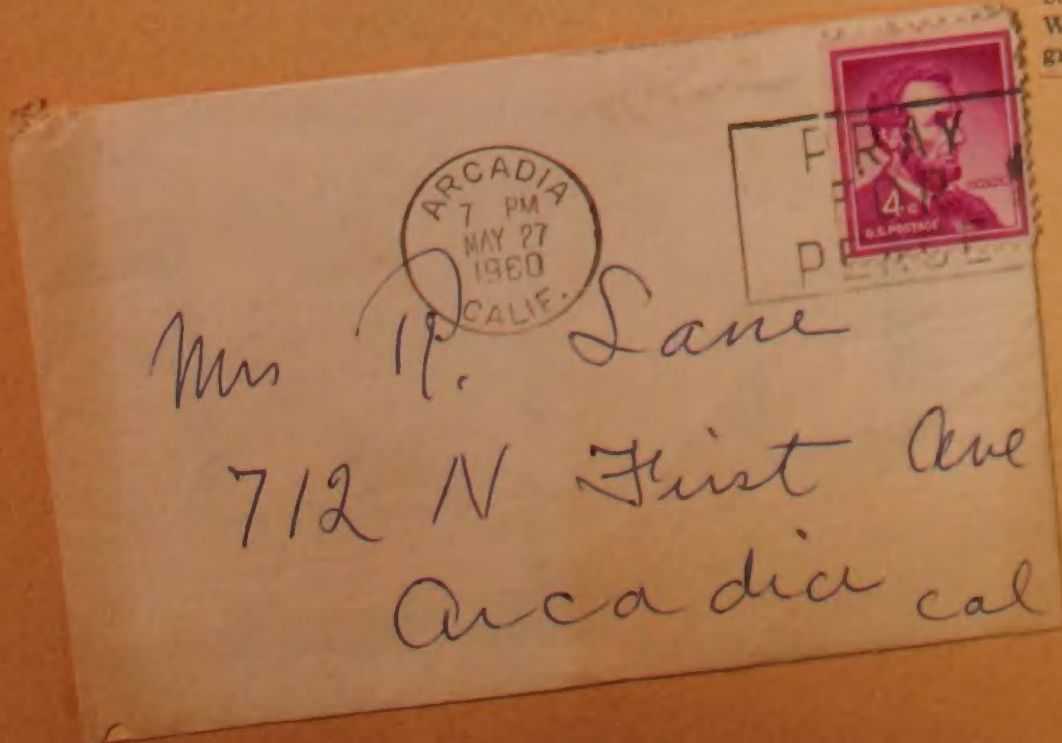 ARCADIA
7 PM
MAY 27
1960
CALIF.
PRAY
FOR
PEACE
4¢
U.S. POSTAGE
Mrs R. Lane
712 N First Ave
Arcadia cal